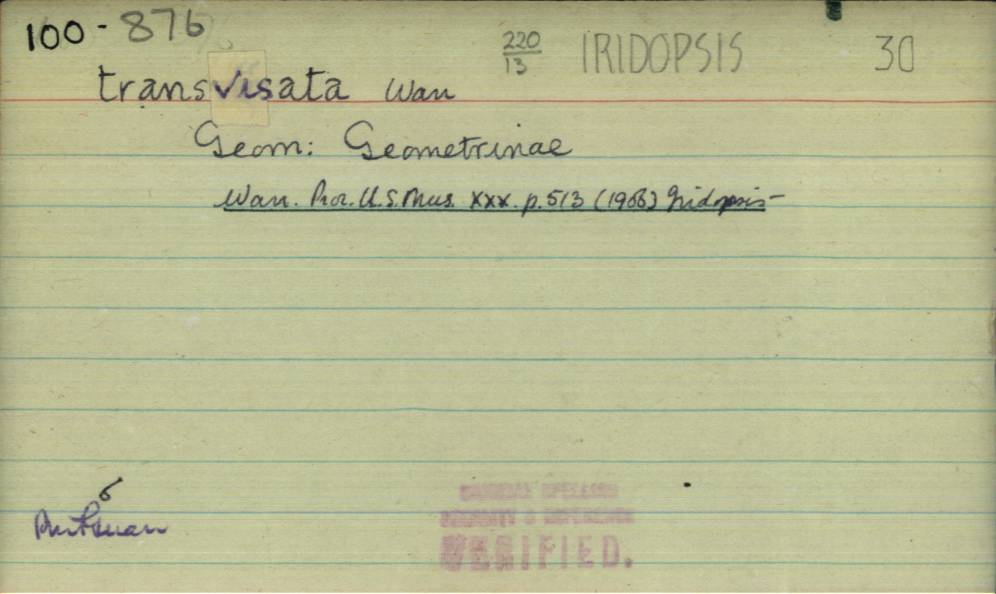 100-876
220/13 IRIDOPSIS 30
transvisata Warr
Geom: Geometrinae
Warr. Proc. U.S. Mus. XXX. p. 513 (1906) Iridopsis
6
VERIFIED.